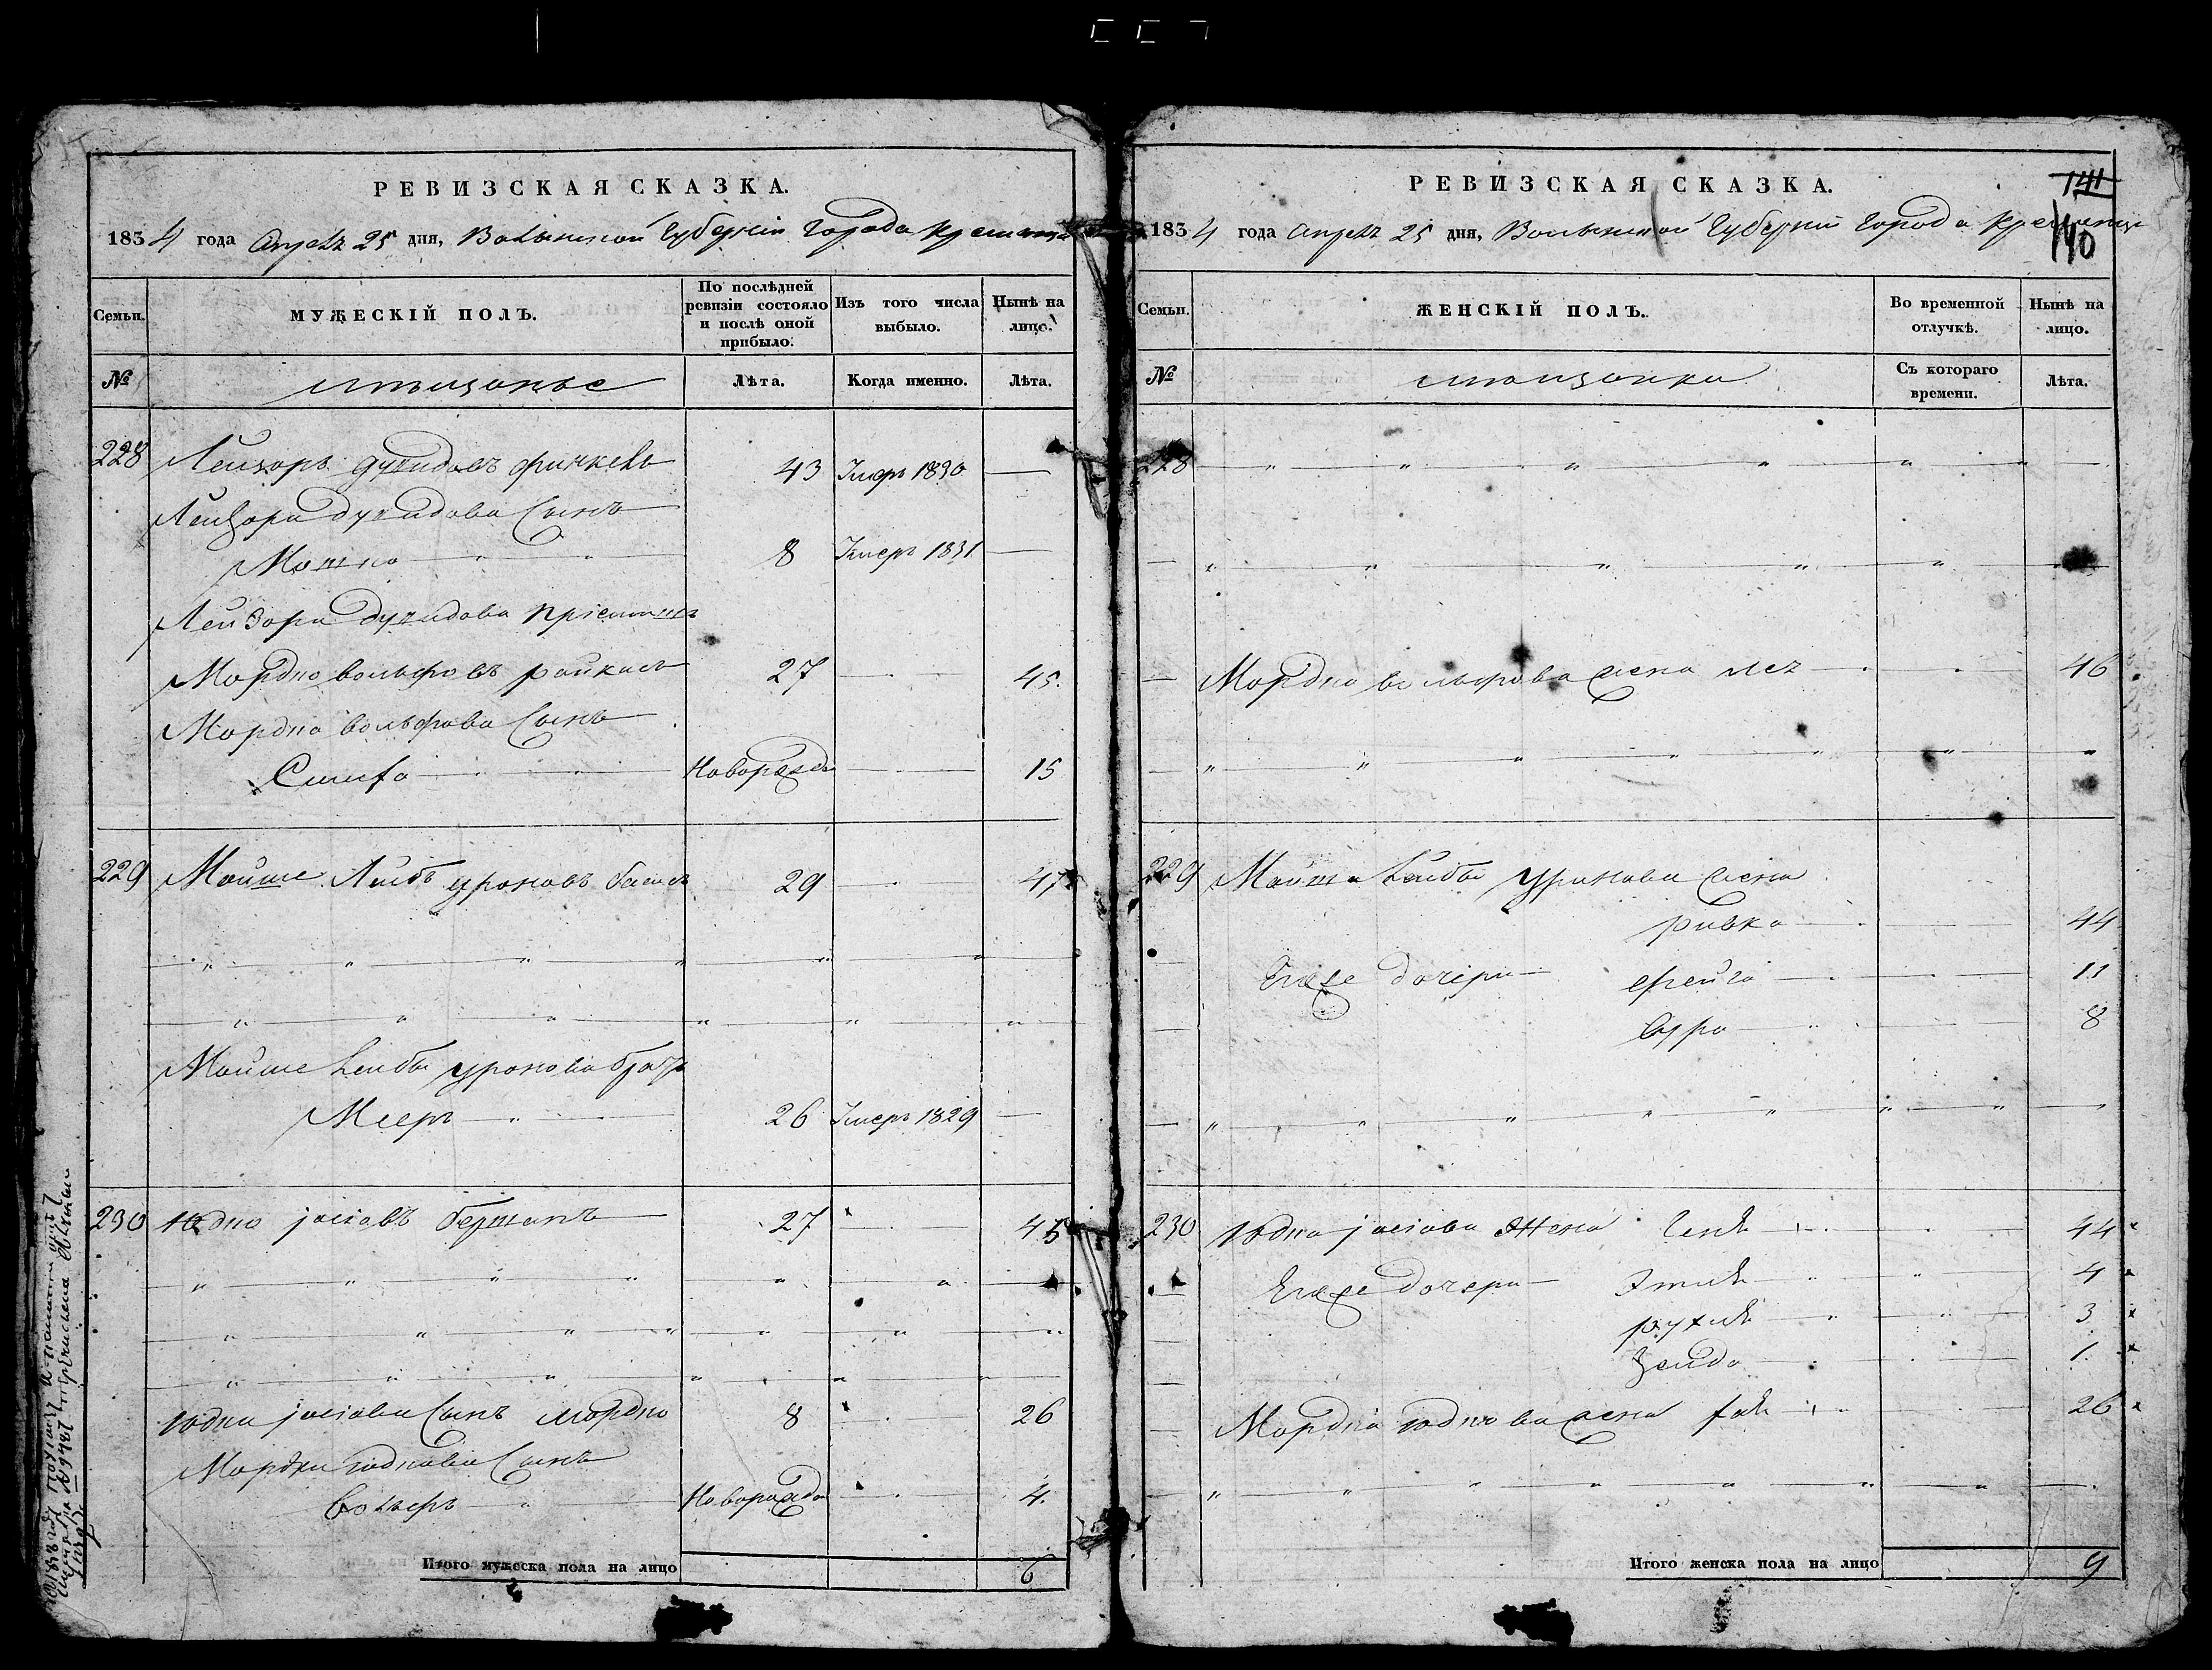 РЕВИЗСКАЯ СКАЗКА.
1834 года Апреля 25 дня, Волынской Губернии Города Кременца
Семьи.
МУЖЕСКІЙ ПОЛЪ.
По послѣдней ревизіи состояло и послѣ оной прибыло.
Изъ того числа выбыло.
Нынѣ на лицо.
№
мѣщанье
Лѣта.
Когда именно.
Лѣта.
228 Лейзоръ дувидовъ 43 Умеръ 1830 —
Лейзора дувидова Сынъ
Мошко 8 Умеръ 1831 —
Лейзора дувидова
Мордко вольфовъ 27 45.
Мордка вольфова Сынъ
Симха Новорожд 15
229 Мойше Лейбъ уроновъ 29 47
Мойше Лейбы уронова братъ
Мееръ 26 Умеръ 1829 —
230 Юдко іосіовъ берманъ 27 45
Юдки іосіова Сынъ Мордко 8 26
Мордки юдкова Сынъ
Новорожд 4.
Итого мужеска пола на лицо 6
РЕВИЗСКАЯ СКАЗКА.
141
140
1834 года Апреля 25 дня, Волынской Губернии Города Кременца
Семьи.
ЖЕНСКІЙ ПОЛЪ.
Во временной отлучкѣ.
Нынѣ на лицо.
№
мѣщанки
Съ котораго времени.
Лѣта.
228
Мордка вольфова жена 46
229 Мойша Лейбы уронова жена
ривка 44
Егоже дочери фейга 11
Сура 8
230 Юдка іосіова Жена 44
Егоже дочери 4
3
1.
Мордка юдкова жена 26
Итого женска пола на лицо 9